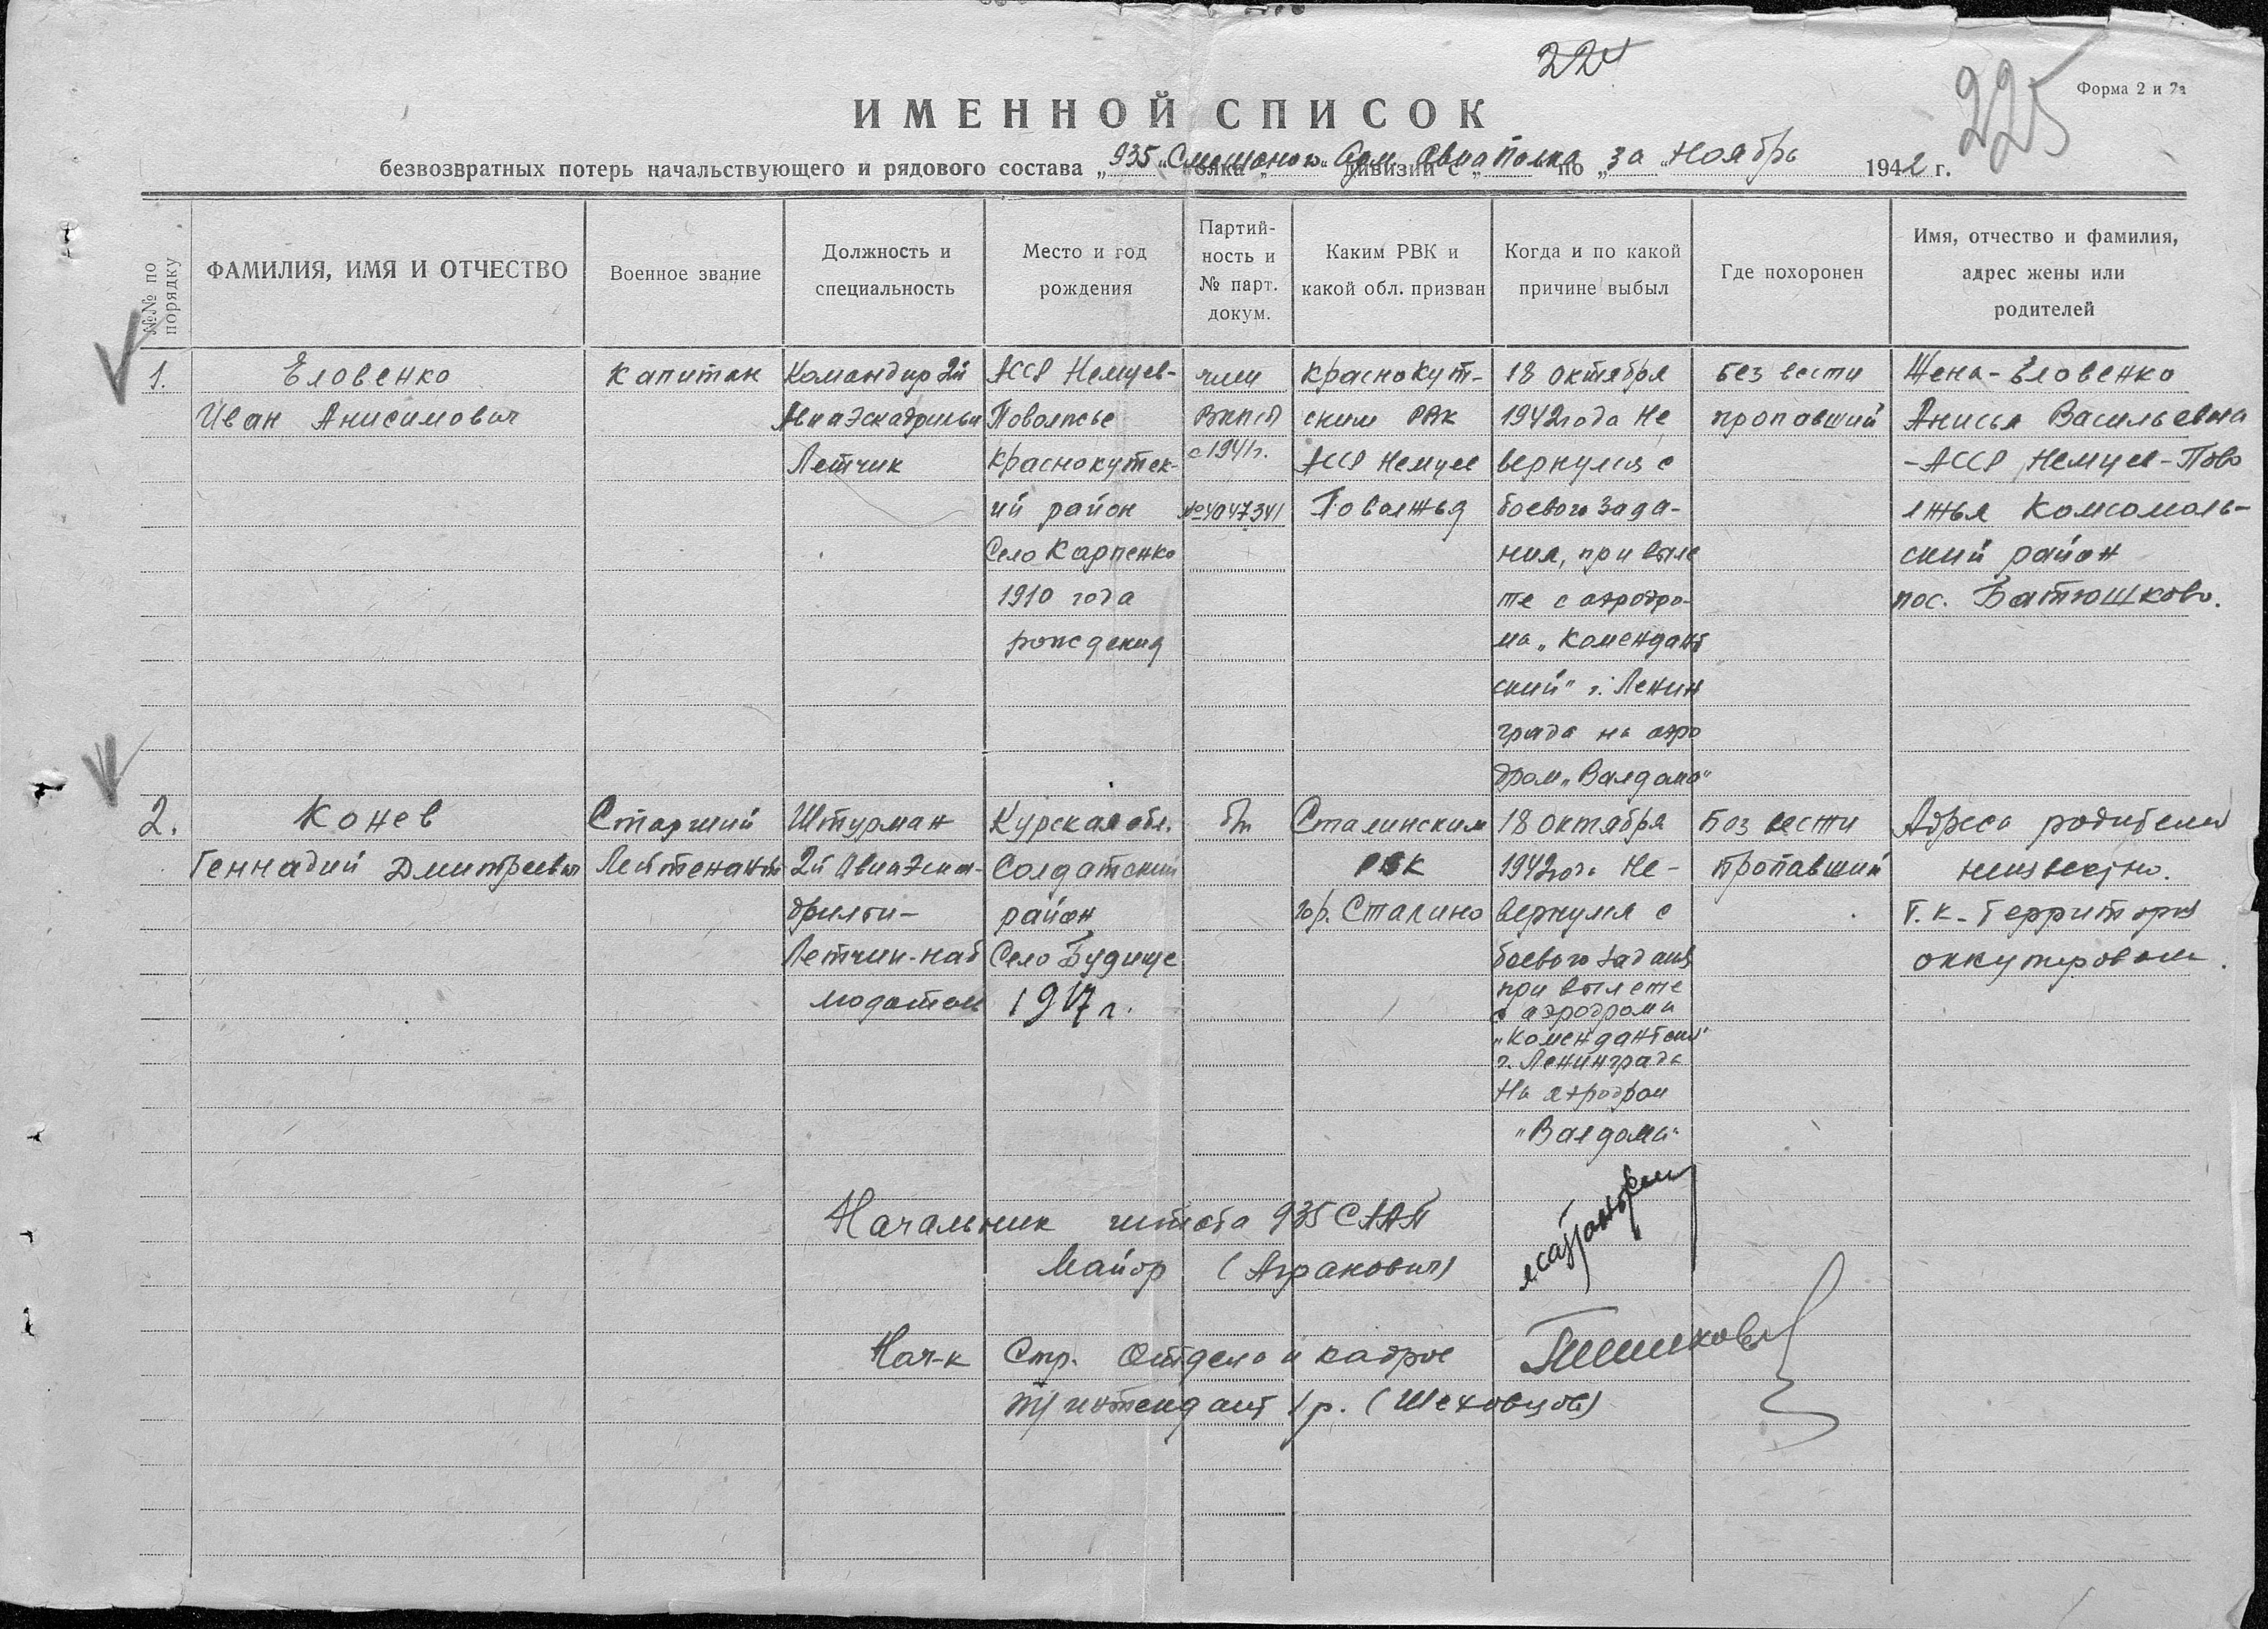 224
225
Форма 2 и 2а
ИМЕННОЙ СПИСОК
безвозвратных потерь начальствующего и рядового состава „935 „Смешаного" Арм. Авиа Полка за Ноябрь 1942 г.
№№ по порядку
ФАМИЛИЯ, ИМЯ И ОТЧЕСТВО
Военное звание
Должность и
специальность
Место и год
рождения
Партий-
ность и
№ парт.
докум.
Каким РВК и
какой обл. призван
Когда и по какой
причине выбыл
Где похоронен
Имя, отчество и фамилия,
адрес жены или
родителей
1.
Еловенко
Иван Анисимович
Капитан
Командир 2й
Авиаэскадрильи
Летчик
АССР Немцев-
Поволжье
Краснокутск-
ий район
Село Карпенко
1910 года
рождения
член
ВКП(б)
с 1941г.
№4047341
Краснокут-
ским РВК
АССР Немцев
Поволжья
18 октября
1942 года не
вернулся с
боевого зада-
ния, при выле
те с аэродро-
ма „Комендант
ский" г. Ленин
града на аэро
дром „Валдома"
без вести
пропавший
Жена - Еловенко
Анисья Васильевна
- АССР Немцев-Пово
лжья Комсомоль-
ский район
пос. Батюшково.
2.
Конев
Геннадий Дмитриевич
Старший
Лейтенант
Штурман
2й Авиаэска-
дрильи-
Летчик-наб
людатель
Курская обл.
Солдатский
район
Село Будище
1917 г.
б/п
Сталинским
РВК
гор. Сталино
18 октября
1942 года не-
вернулся с
боевого задания
при вылете
с аэродрома
"Комендантский"
г. Ленинграда
на аэродром
"Валдома"
Без вести
пропавший
Адреса родителей
неизвестно.
т.к. территория
оккупирована.
Начальник штаба 935 САП
Майор (Агранович)
Нач-к Стр. Отдела и кадров
т/интендант 1р. (Шеховцов)